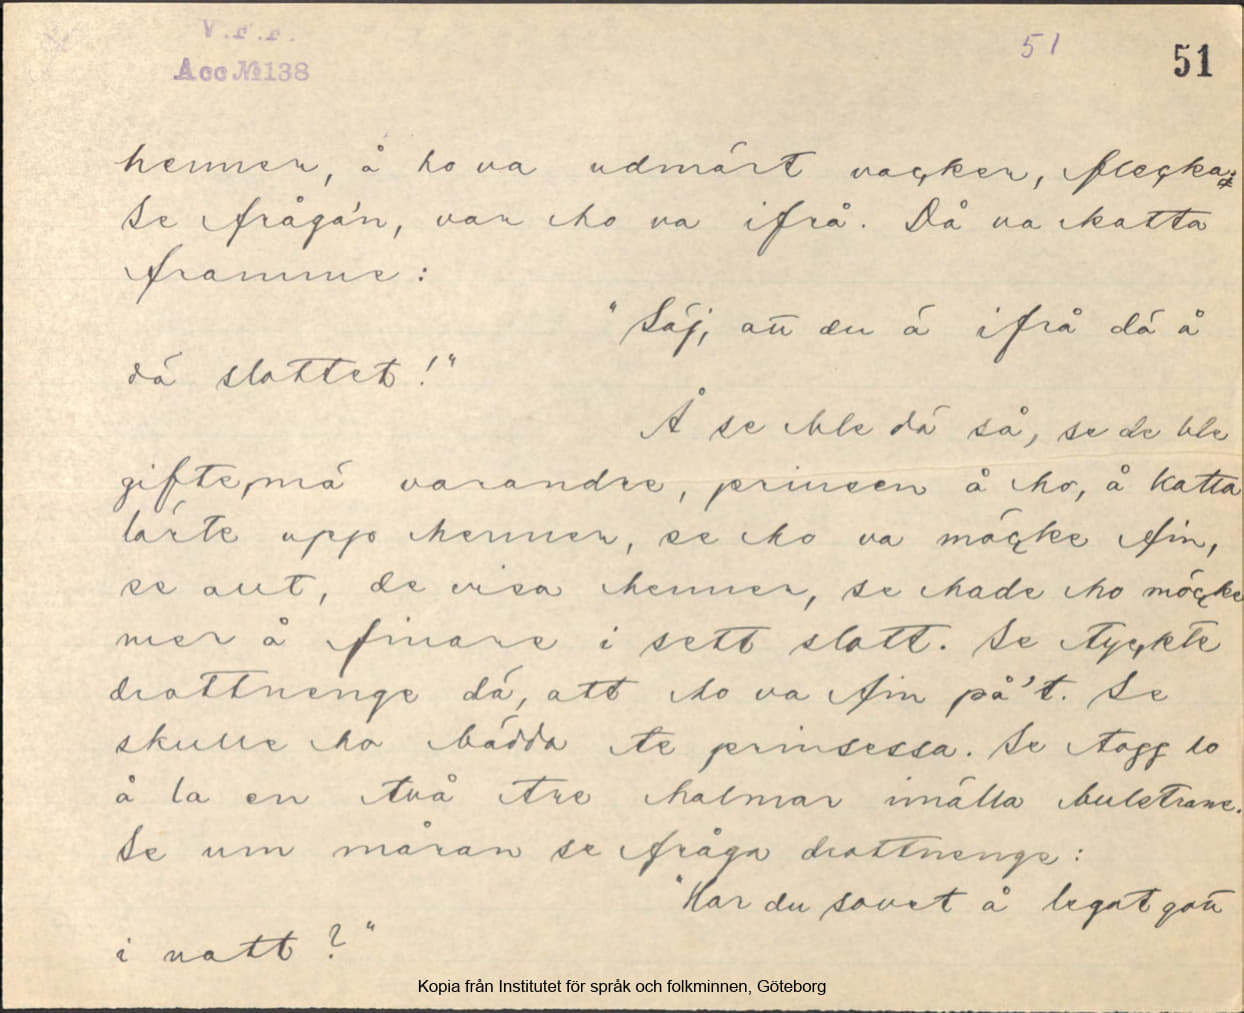 V.F.F.
Acc № 138
51
51
henner, å ho va udmärt vaçker, fleçka;
Se fråga'n, var ho va ifrå. Då va katta
framme:
"Säj, att du ä ifrå dä å
dä slottet!"
Å se ble dä så, se de ble
gifte, mä varandre, prinsen å ho, å katta
lärte upp henner, se ho va möçke fin,
se allt, de visa henner, se hade ho möçke
mer å finare i sett slott. Se tyçkte
drottnenge dä, att ho va fin på't. Se
skulle ho bädda te prinsessa. Se togg ho
å la en två tre halmar imälla buletrane.
Se um måran se fråga drottnenge:
"Har du sovet å legat gott
i natt?"
Kopia från Institutet för språk och folkminnen, Göteborg